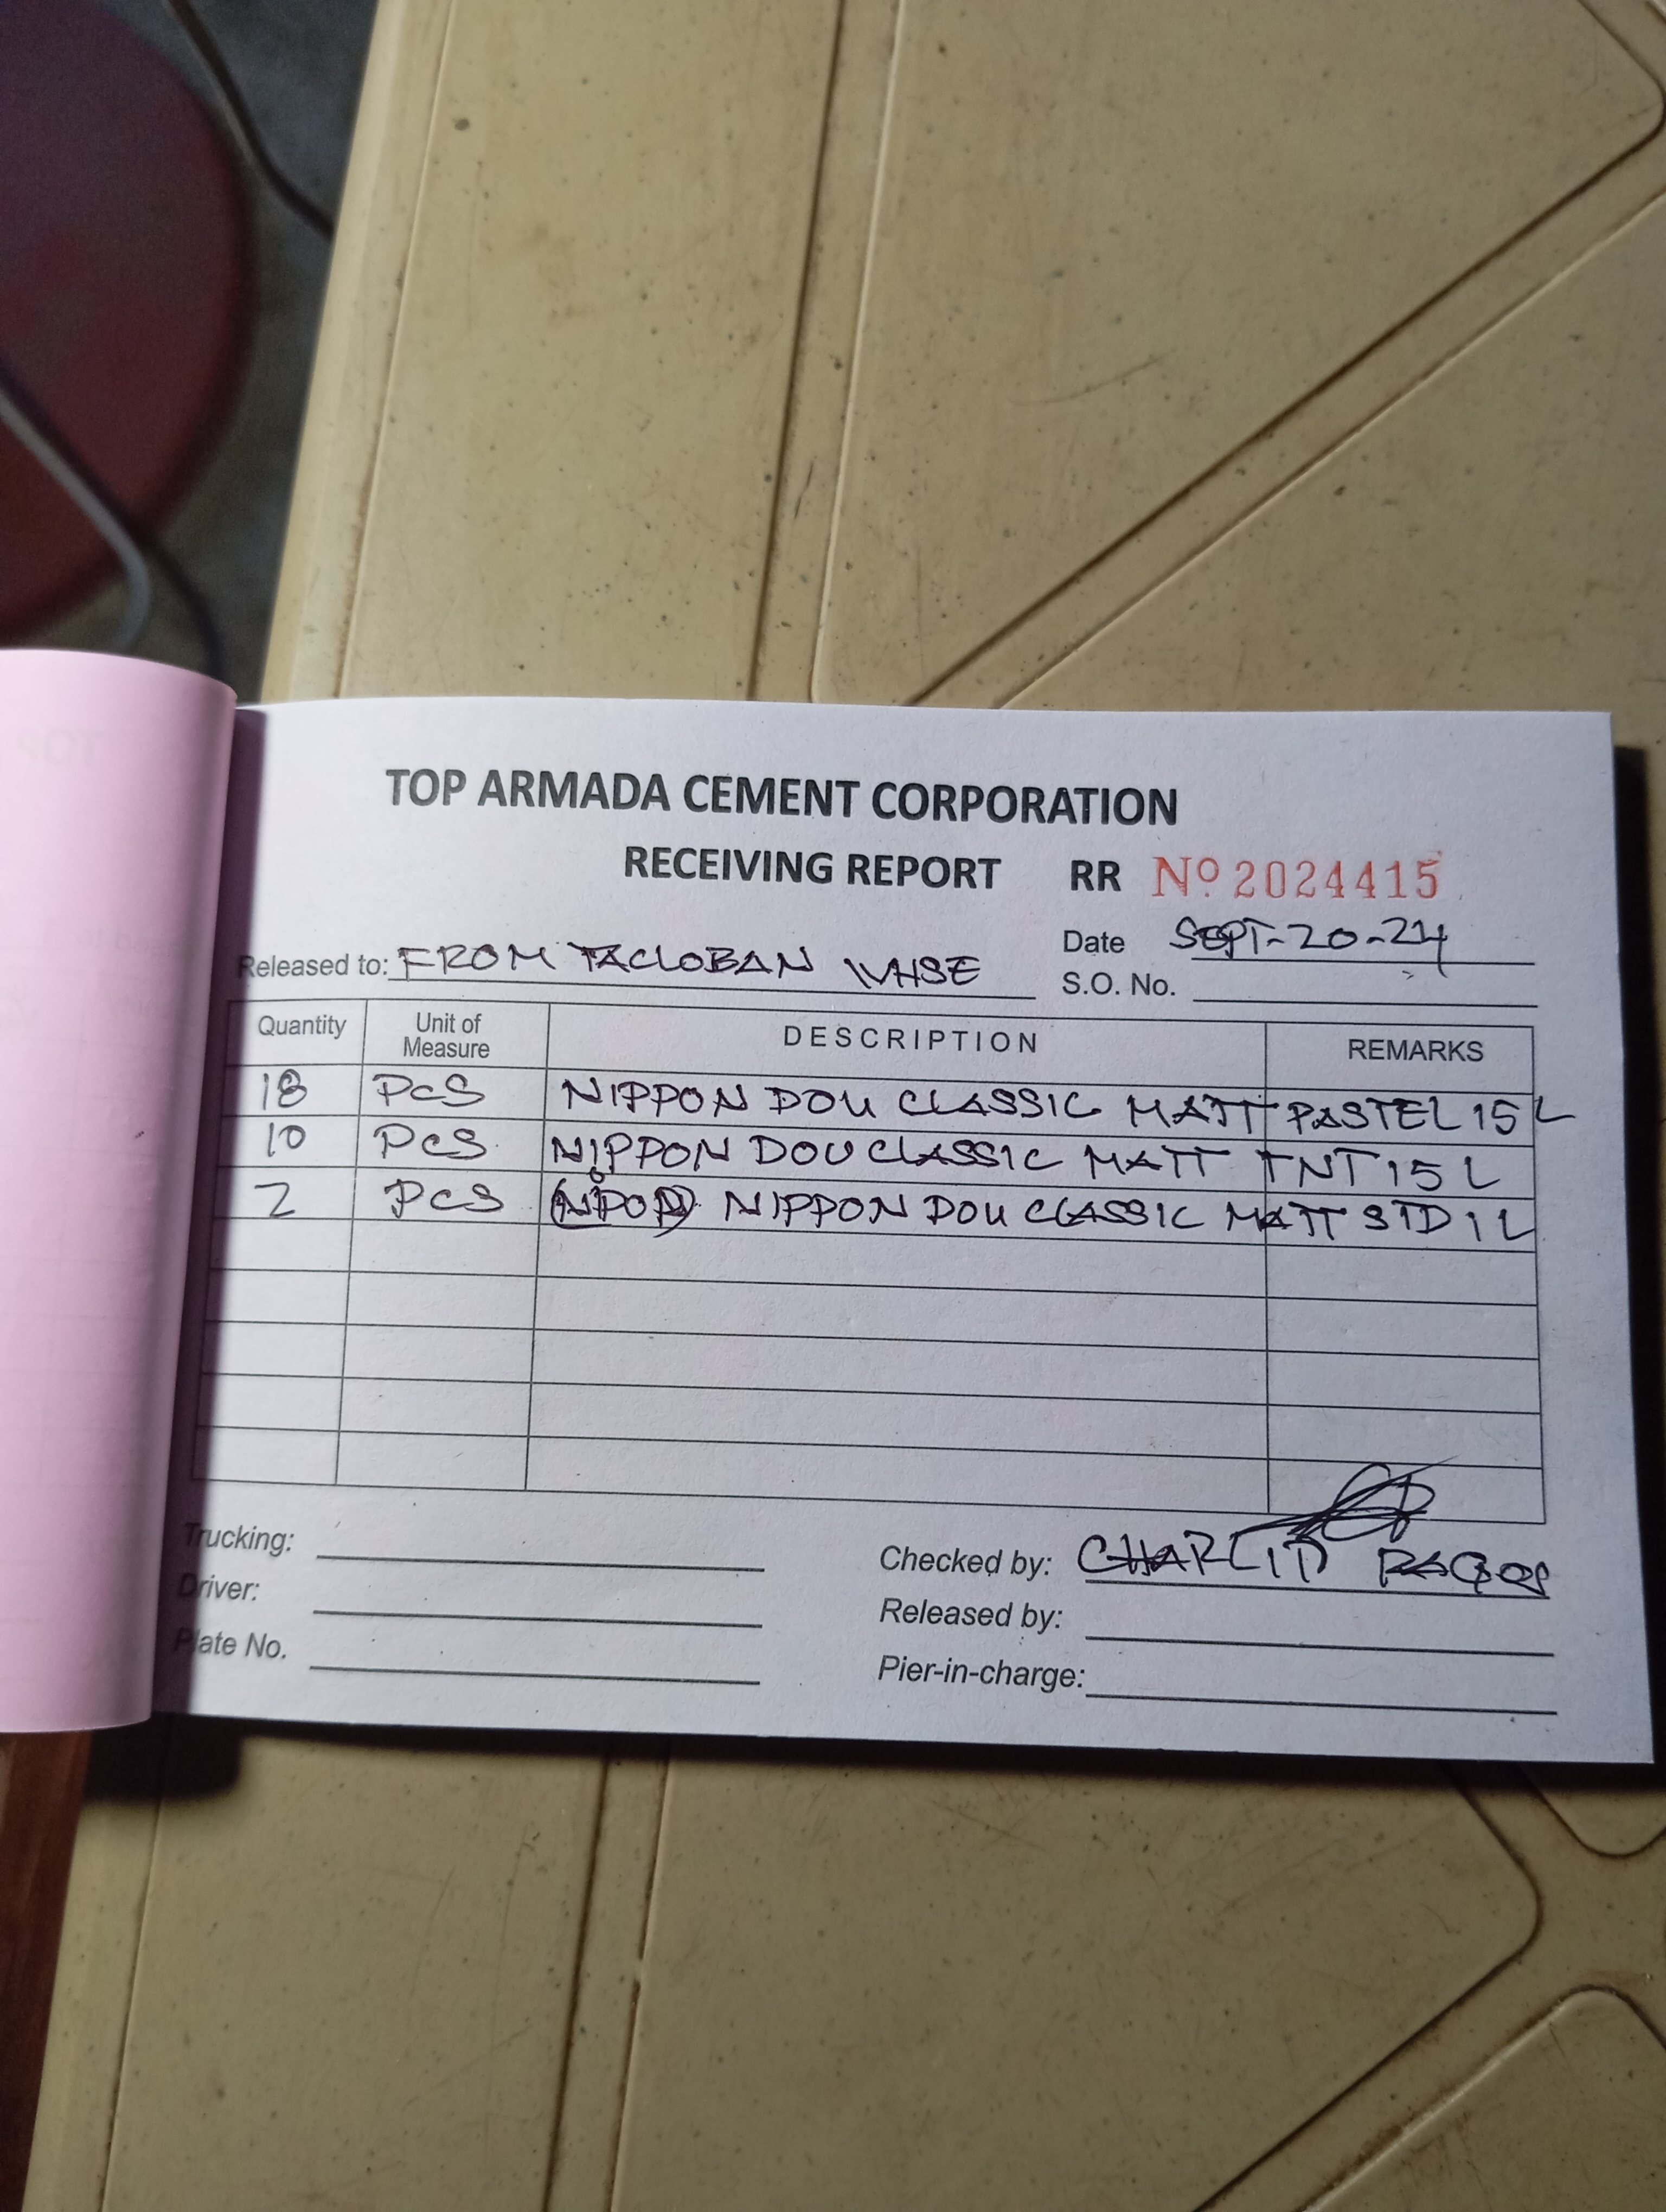 TOP ARMADA CEMENT CORPORATION
RECEIVING REPORT RR Nº 2024415
Date SEPT-20-24
Released to: FROM TACLOBAN WHSE
S.O. No.
Quantity Unit of Measure DESCRIPTION REMARKS
18 PcS NIPPON DOU CLASSIC MATT PASTEL 15 L
10 PcS NIPPON DOU CLASSIC MATT TNT 15 L
2 PcS NIPPON DOU CLASSIC MATT STD 1 L
Trucking:
Driver:
Plate No.
Checked by:
Released by:
Pier-in-charge:
TOP